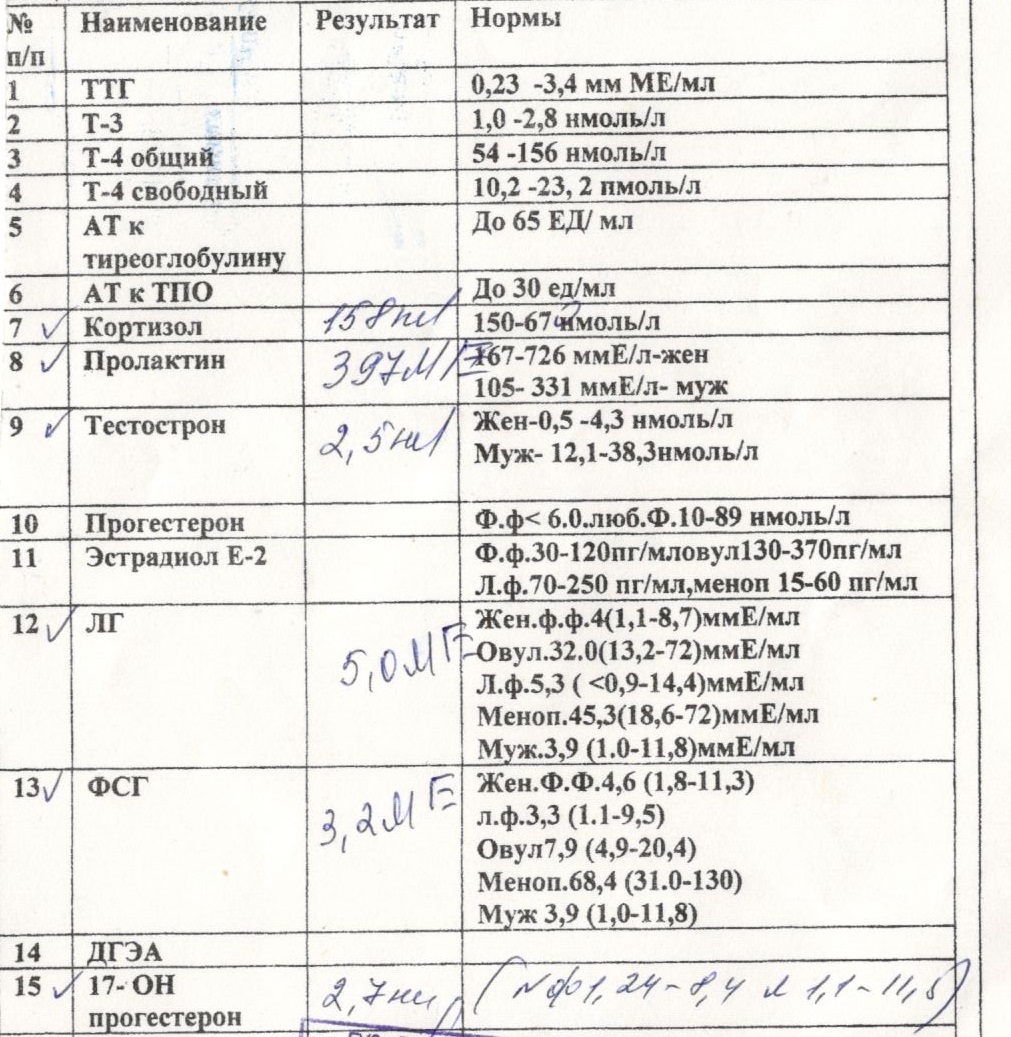 № Наименование Результат Нормы
п/п
1 ТТГ 0,23 -3,4 мм МЕ/мл
2 Т-3 1,0 -2,8 нмоль/л
3 Т-4 общий 54 -156 нмоль/л
4 Т-4 свободный 10,2 -23, 2 пмоль/л
5 АТ к До 65 ЕД/ мл
тиреоглобулину
6 АТ к ТПО До 30 ед/мл
7 Кортизол 158 нм/ 150-67 нмоль/л
8 Пролактин 397 МЕ 167-726 ммЕ/л-жен
105- 331 ммЕ/л- муж
9 Тестострон 2,5 нм/ Жен-0,5 -4,3 нмоль/л
Муж- 12,1-38,3нмоль/л
10 Прогестерон Ф.ф< 6.0.люб.Ф.10-89 нмоль/л
11 Эстрадиол Е-2 Ф.ф.30-120пг/мловул130-370пг/мл
Л.ф.70-250 пг/мл,меноп 15-60 пг/мл
12 ЛГ 5,0 МЕ Жен.ф.ф.4(1,1-8,7)ммЕ/мл
Овул.32.0(13,2-72)ммЕ/мл
Л.ф.5,3 ( <0,9-14,4)ммЕ/мл
Меноп.45,3(18,6-72)ммЕ/мл
Муж.3,9 (1.0-11,8)ммЕ/мл
13 ФСГ 3,2 МЕ Жен.Ф.Ф.4,6 (1,8-11,3)
л.ф.3,3 (1.1-9,5)
Овул7,9 (4,9-20,4)
Меноп.68,4 (31.0-130)
Муж 3,9 (1,0-11,8)
14 ДГЭА
15 17- ОН 2,7 нм/ (N фф 1,24-8,4 л 1,1-11,8)
прогестерон